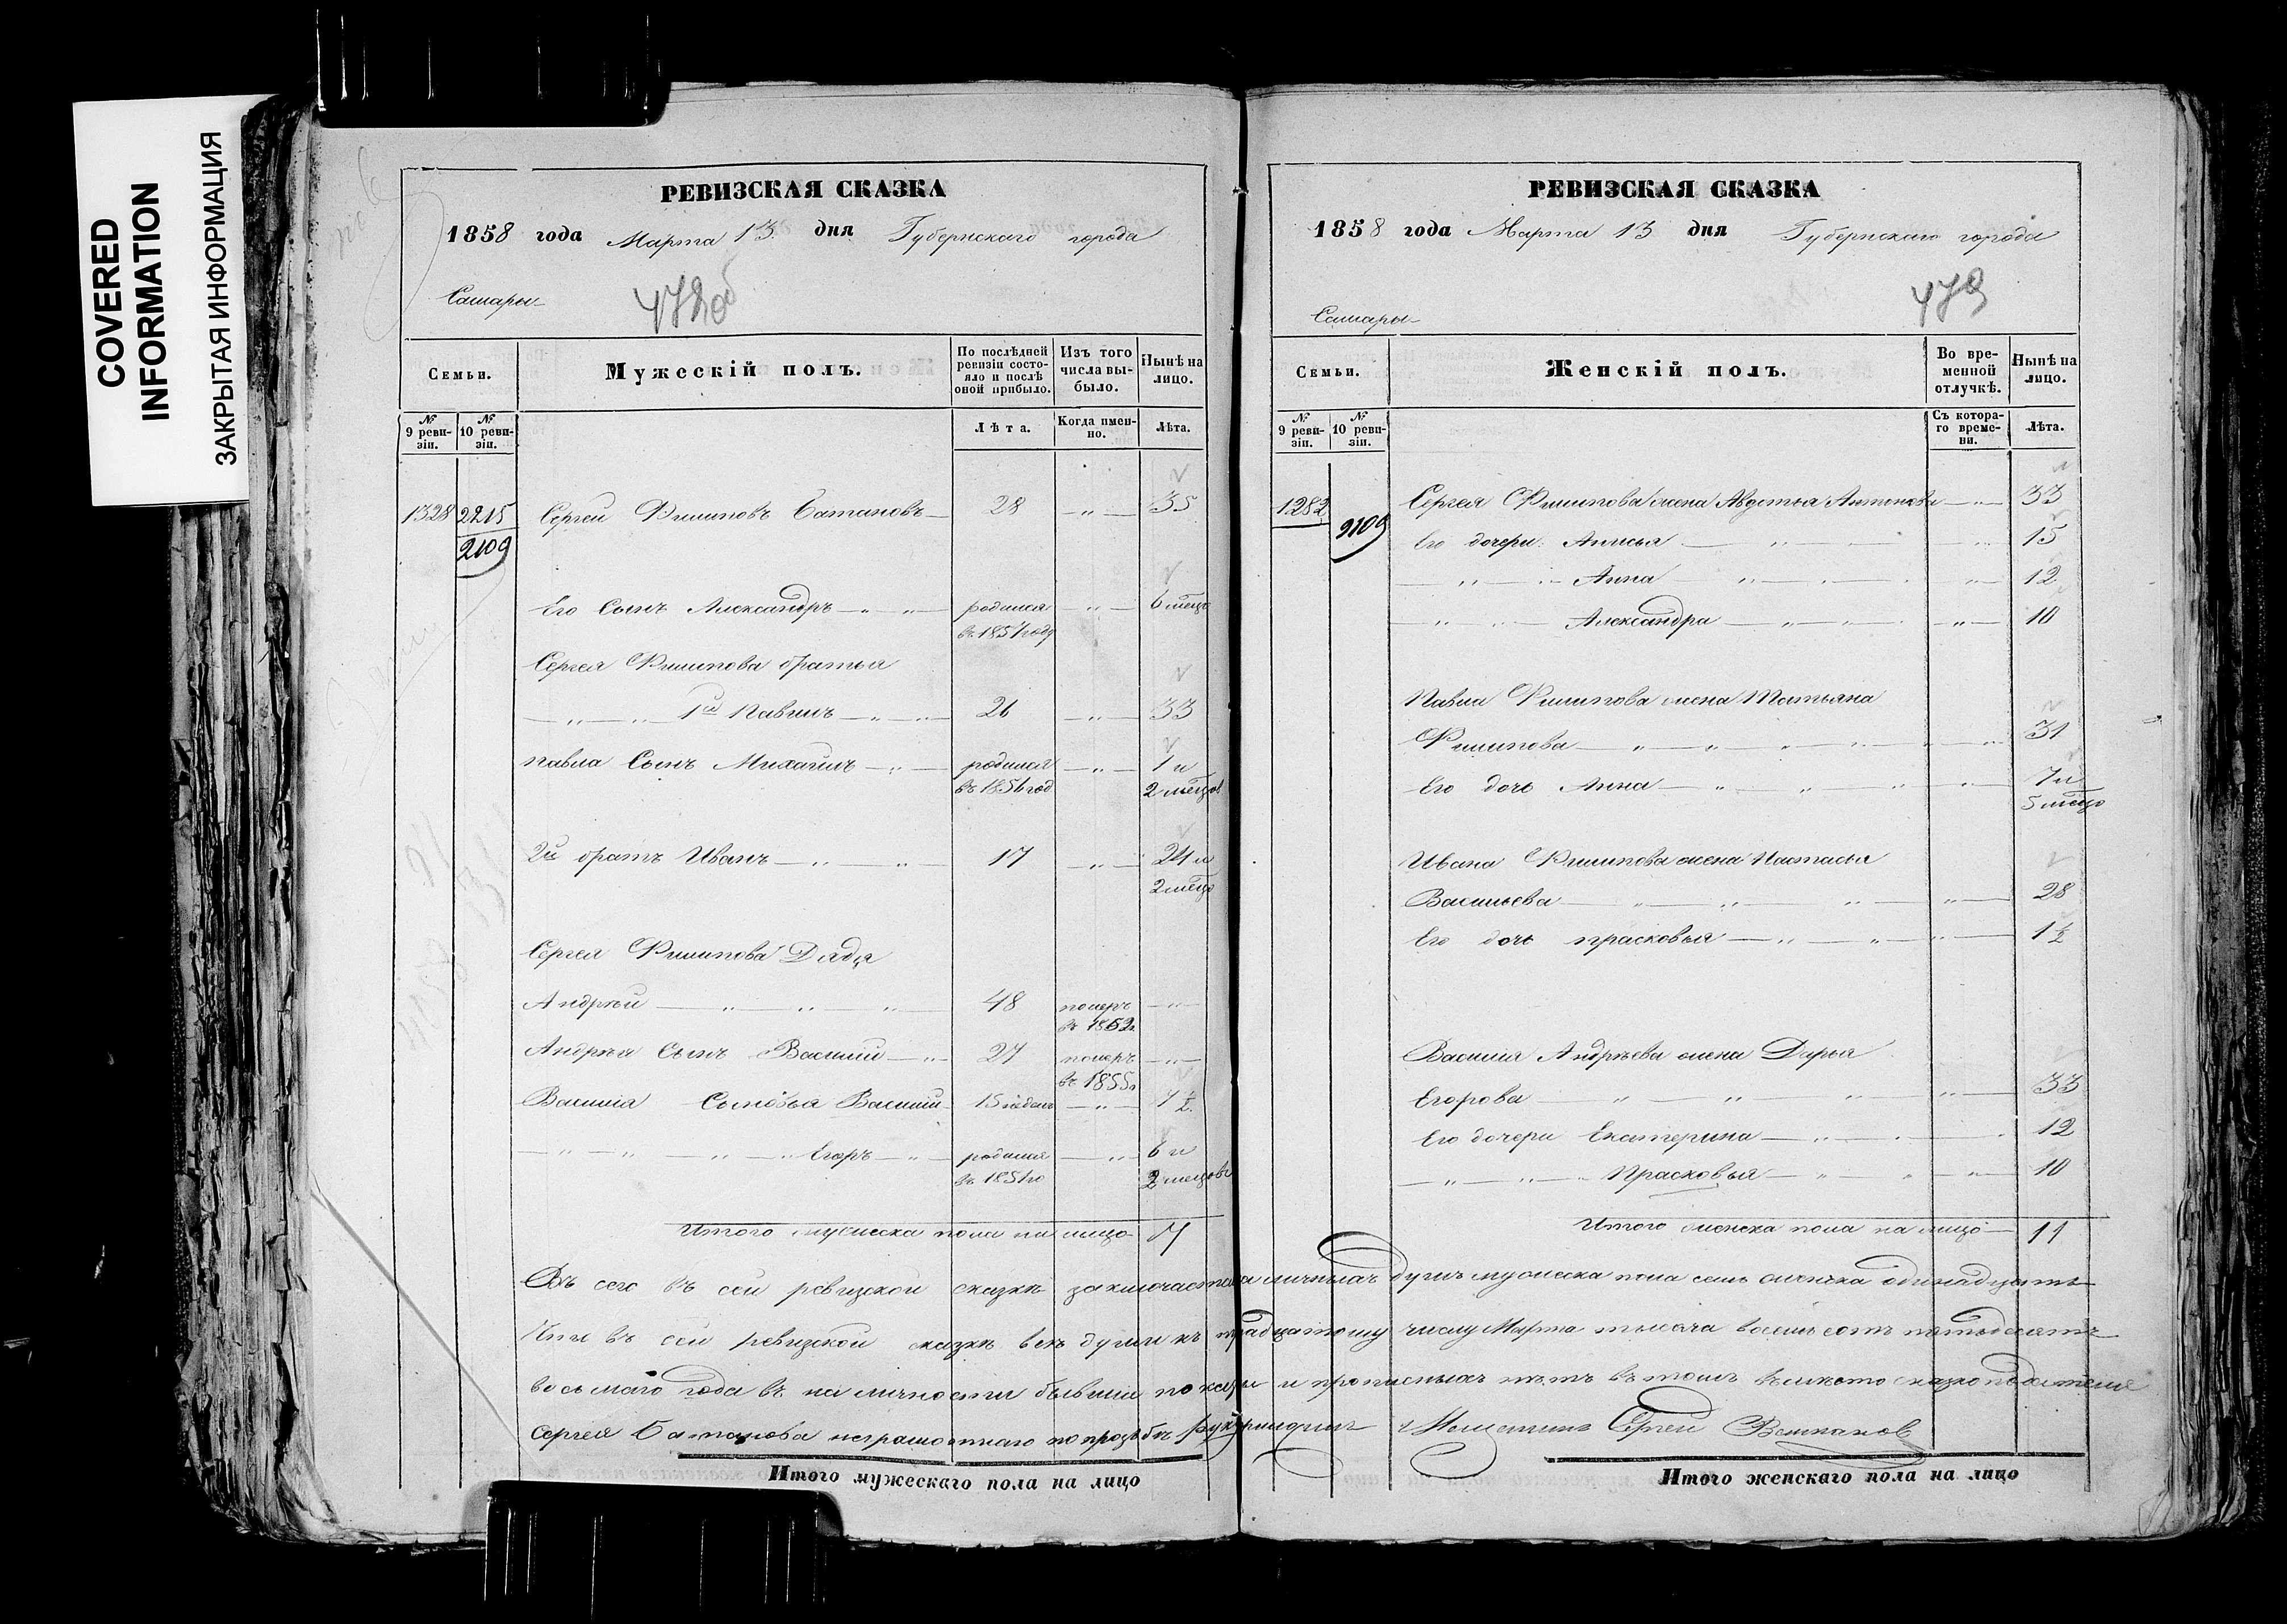 COVERED
INFORMATION
ЗАКРЫТАЯ ИНФОРМАЦИЯ
РЕВИЗСКАЯ СКАЗКА
1858 года Марта 13 дня Губернскаго города
Самары
472об
Семьи.
Мужескій полъ.
По послѣдней ревизіи состояло и послѣ оной прибыло.
Изъ того числа выбыло.
Нынѣ на лицо.
№ 9 ревизіи.
№ 10 ревизіи.
Лѣта.
Когда именно.
Лѣта.
1328 2215 Сергей Филиповъ Батановъ 28 35
2109
Его Сынъ Александръ родился 6 мецъ
въ 1857 году
Сергея Филипова братья
1й Павилъ 26 33
Павла Сынъ Михаилъ родился 1 и
въ 1856 год 2 мецов
2й братъ Иванъ 17 24 и
2 мецо
Сергея Филипова Дядя
Андрей 48 померъ
въ 1852
Андрея Сынъ Василий 27 померъ
въ 1855
Василия Сыновья Василий 7 1/2
Егоръ родился 6 и
въ 1851 го 2 мецовъ
Итого мужеска пола на лицо 7
РЕВИЗСКАЯ СКАЗКА
1858 года Марта 13 дня Губернскаго города
Самары
473
Семьи.
Женскій полъ.
Во временной отлучкѣ.
Нынѣ на лицо.
№ 9 ревизіи.
№ 10 ревизіи.
Съ котораго времени.
Лѣта.
1282 Сергея Филипова жена Авдотья Антонова 33
2109 Его дочери Анисья 15
Анна 12
Александра 10
Павла Филипова жена Татьяна
Филипова 31
Его дочь Анна 7 и
5 мецо
Ивана Филипова жена Настасья
Васильева 28
Его дочь Прасковья 1 1/2
Василия Андреева жена Дарья
Егорова 33
Его дочери Екатерина 12
Прасковья 10
Итого женска пола на лицо 11
Всего въ сей ревизской сказке заключается наличныхъ душъ мужеска пола семь женска одинадцать
въ сей ревизской сказке все души къ числу Марта тысяча восемь сотъ пятьдесятъ
восьмаго года въ наличности бывши показаны и прописныхъ нетъ въ томъ вместо сказкоподателя
Сергея Батанова неграмотнаго по прозьбе Сергей
Итого мужескаго пола на лицо
Итого женскаго пола на лицо